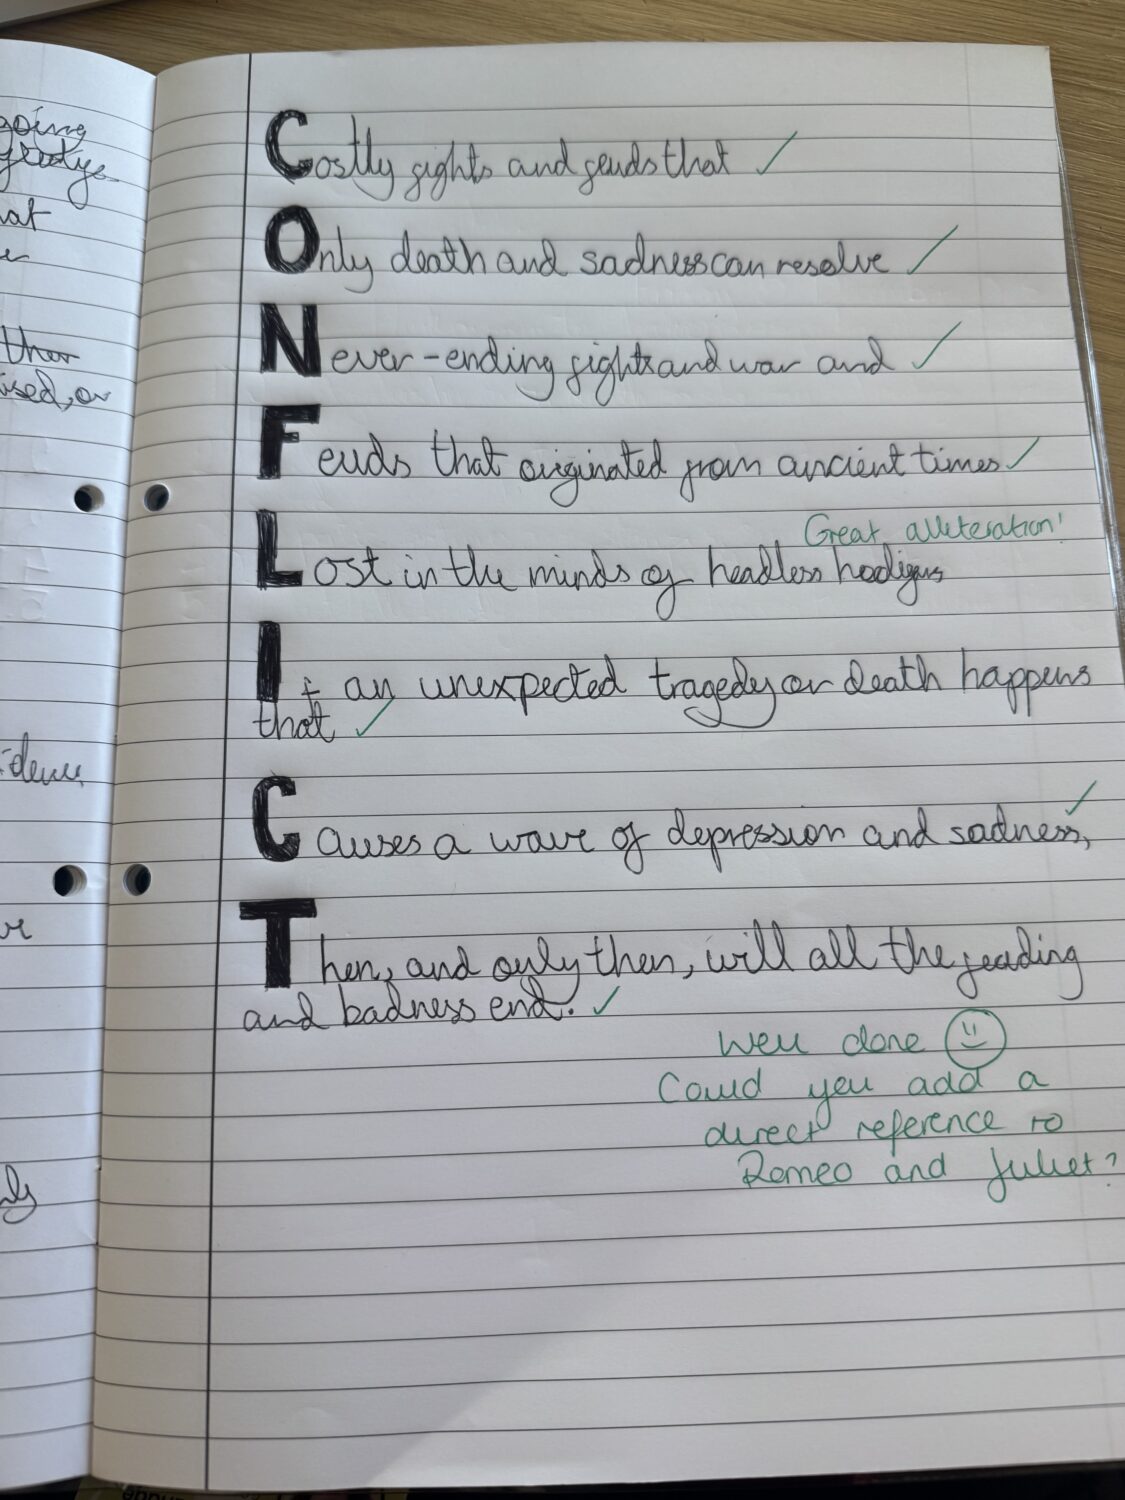 going
that
Costly fights and feuds that
Only death and sadness can resolve
Never-ending fights and war and
Feuds that originated from ancient times
Great alliteration!
Lost in the minds of headless
If an unexpected tragedy or death happens
that
Causes a wave of depression and sadness,
Then, and only then, will all the feuding
and badness end.
Well done
Could you add a
direct reference to
Romeo and Juliet?